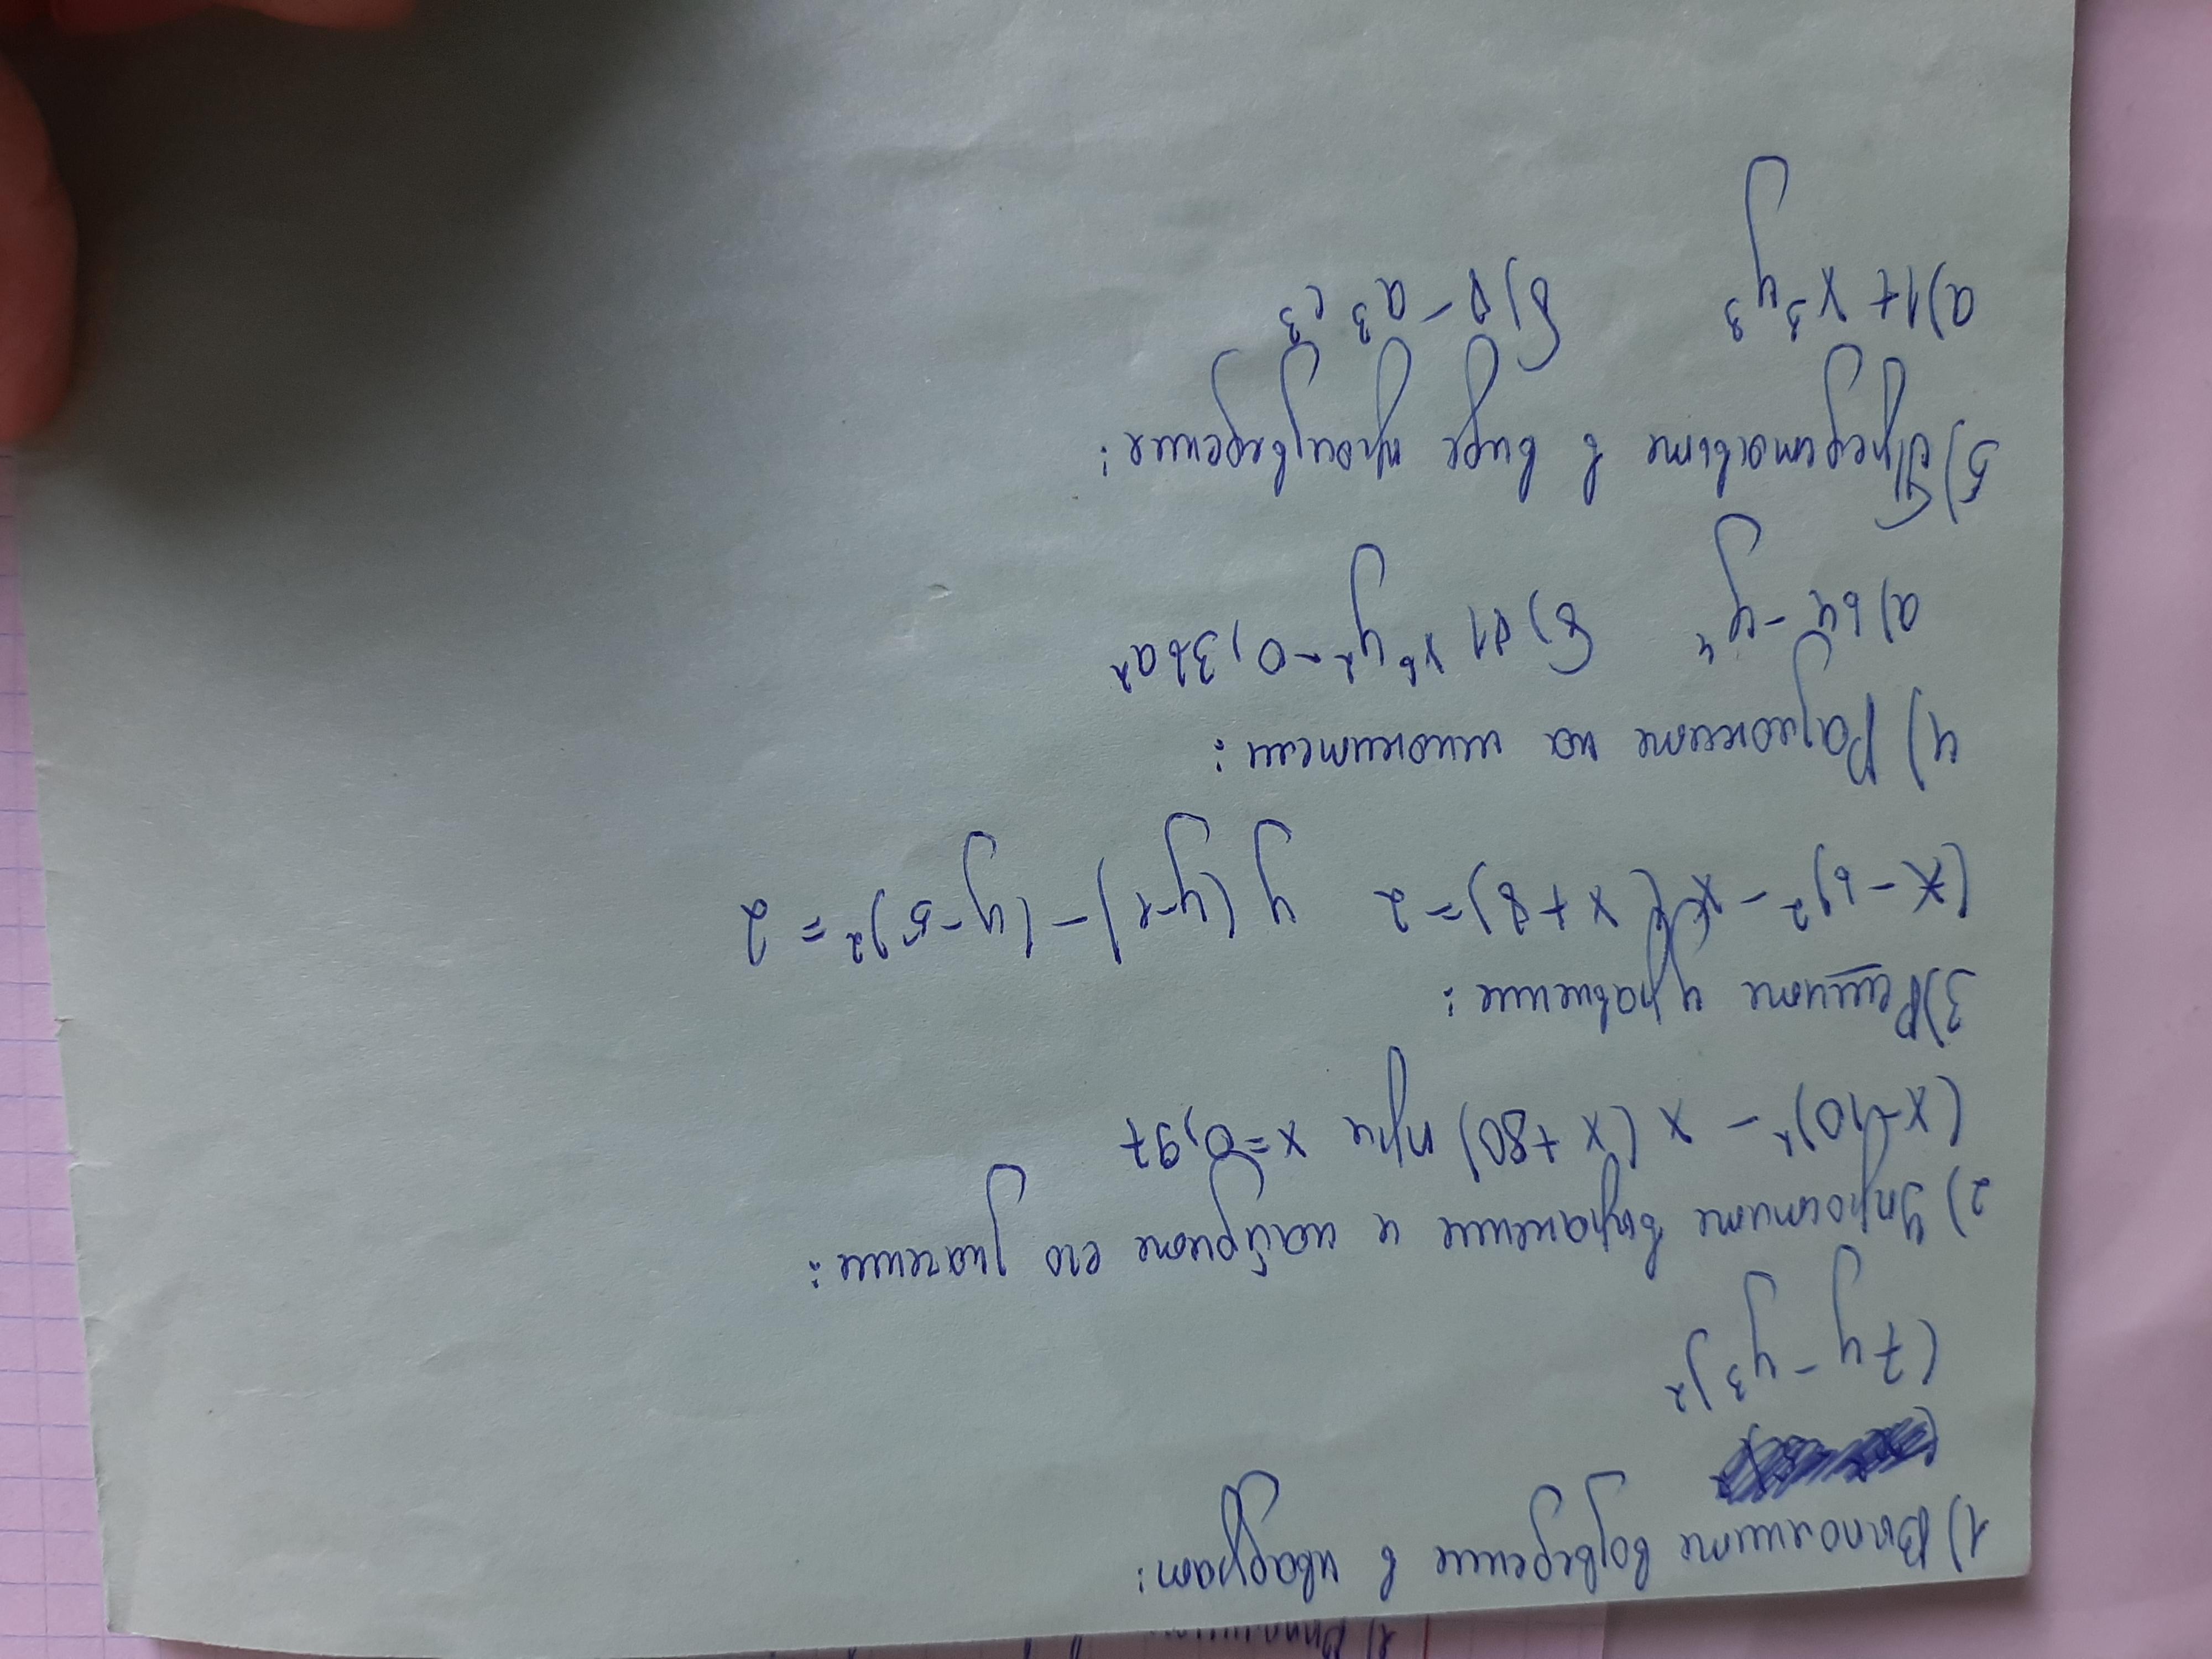 1) Выполнить возведение в квадрат:
(7y - y³)²
2) Упростить выражение и найдите его значение:
(x-10)² - x(x+80) при x=0,97
3) Решить уравнение:
(x-6)² - x(x+8)=2 y(y-1) - (y-5)² = 2
4) Разложить на множители:
а) 64 - y⁴ б) 81x⁶y² - 0,36a²
5) Представить в виде произведения:
а) 1+x³y³ б) 8 - a³c³